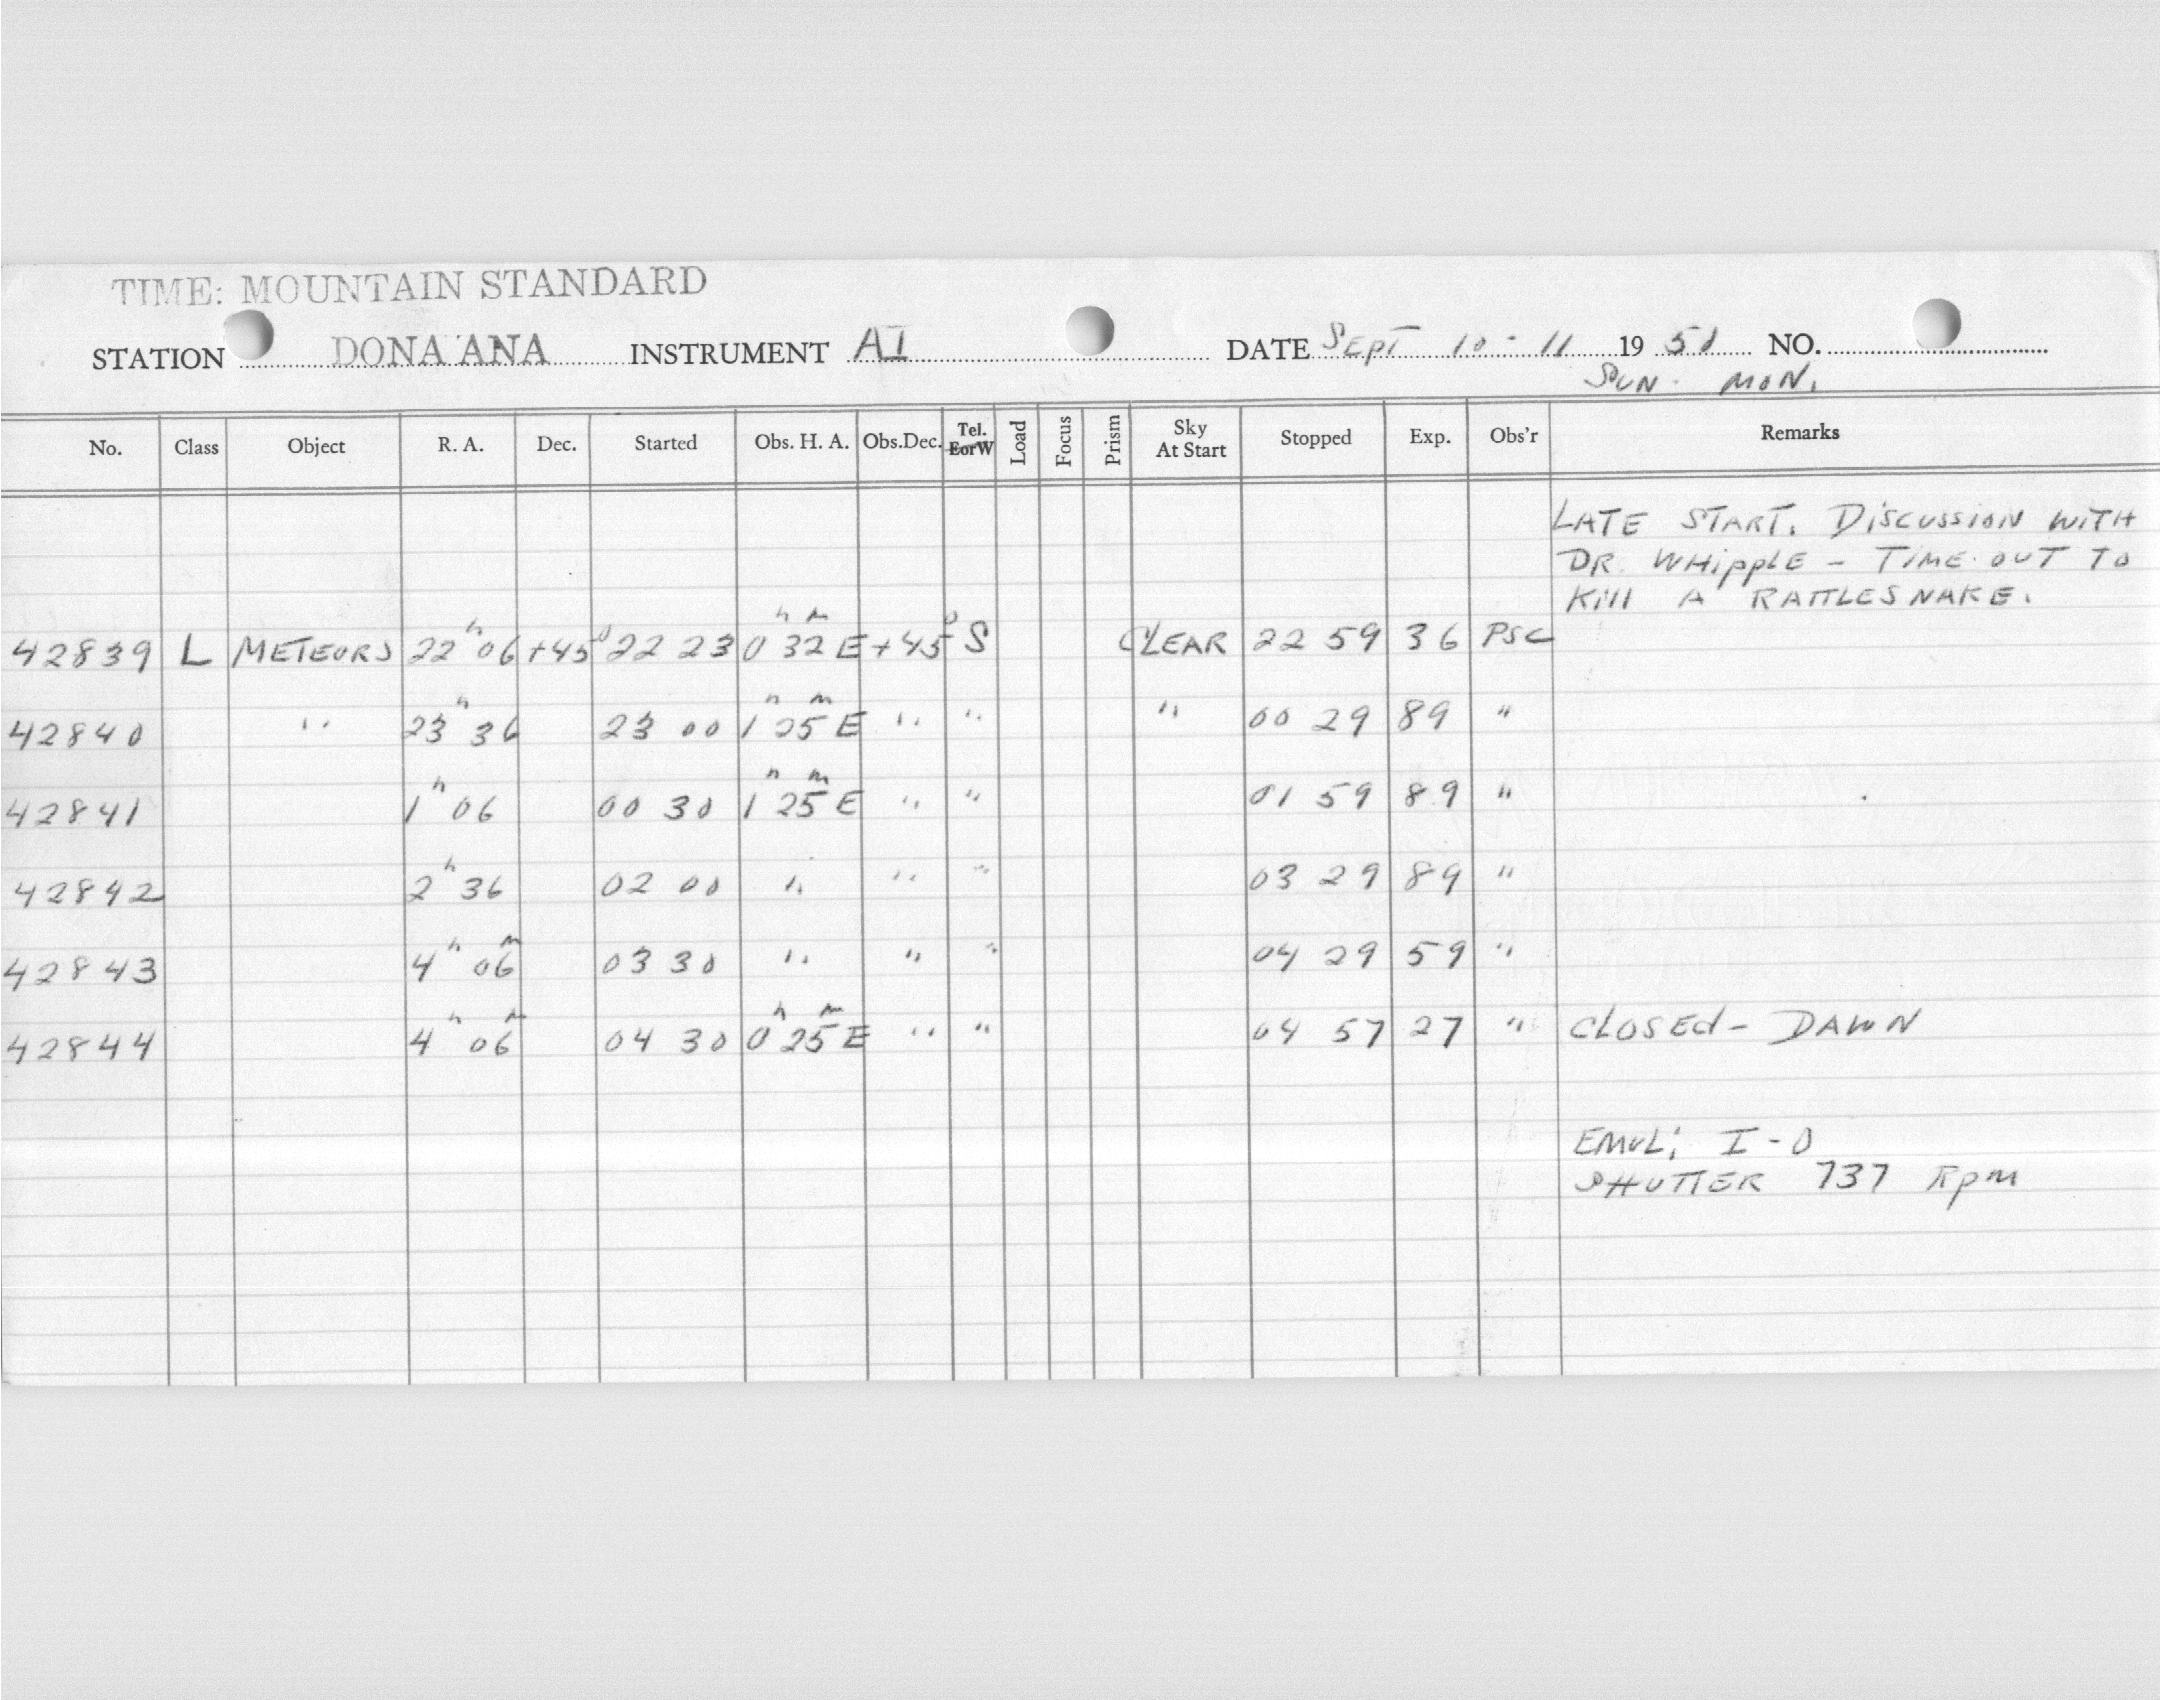 TIME: MOUNTAIN STANDARD
STATION DONA ANA INSTRUMENT AI DATE SEPT 10-11 1950 NO.
SUN. MON.
No. Class Object R. A. Dec. Started Obs. H. A. Obs.Dec. Tel. EorW Load Focus Prism Sky At Start Stopped Exp. Obs'r Remarks
LATE START. DISCUSSION WITH
DR. WHIPPLE - TIME OUT TO
KILL A RATTLESNAKE.
42839 L METEORS 22h 06 +45° 22 23 0h 32m E +45° S CLEAR 22 59 36 PSC
42840 " 23h 36 23 00 1h 25m E " " " 00 29 89 "
42841 1h 06 00 30 1h 25m E " " 01 59 89 "
42842 2h 36 02 00 " " " 03 29 89 "
42843 4h 06m 03 30 " " " 04 29 59 "
42844 4h 06m 04 30 0h 25m E " " 04 57 27 " CLOSED - DAWN
EMUL: I-0
SHUTTER 737 RPM